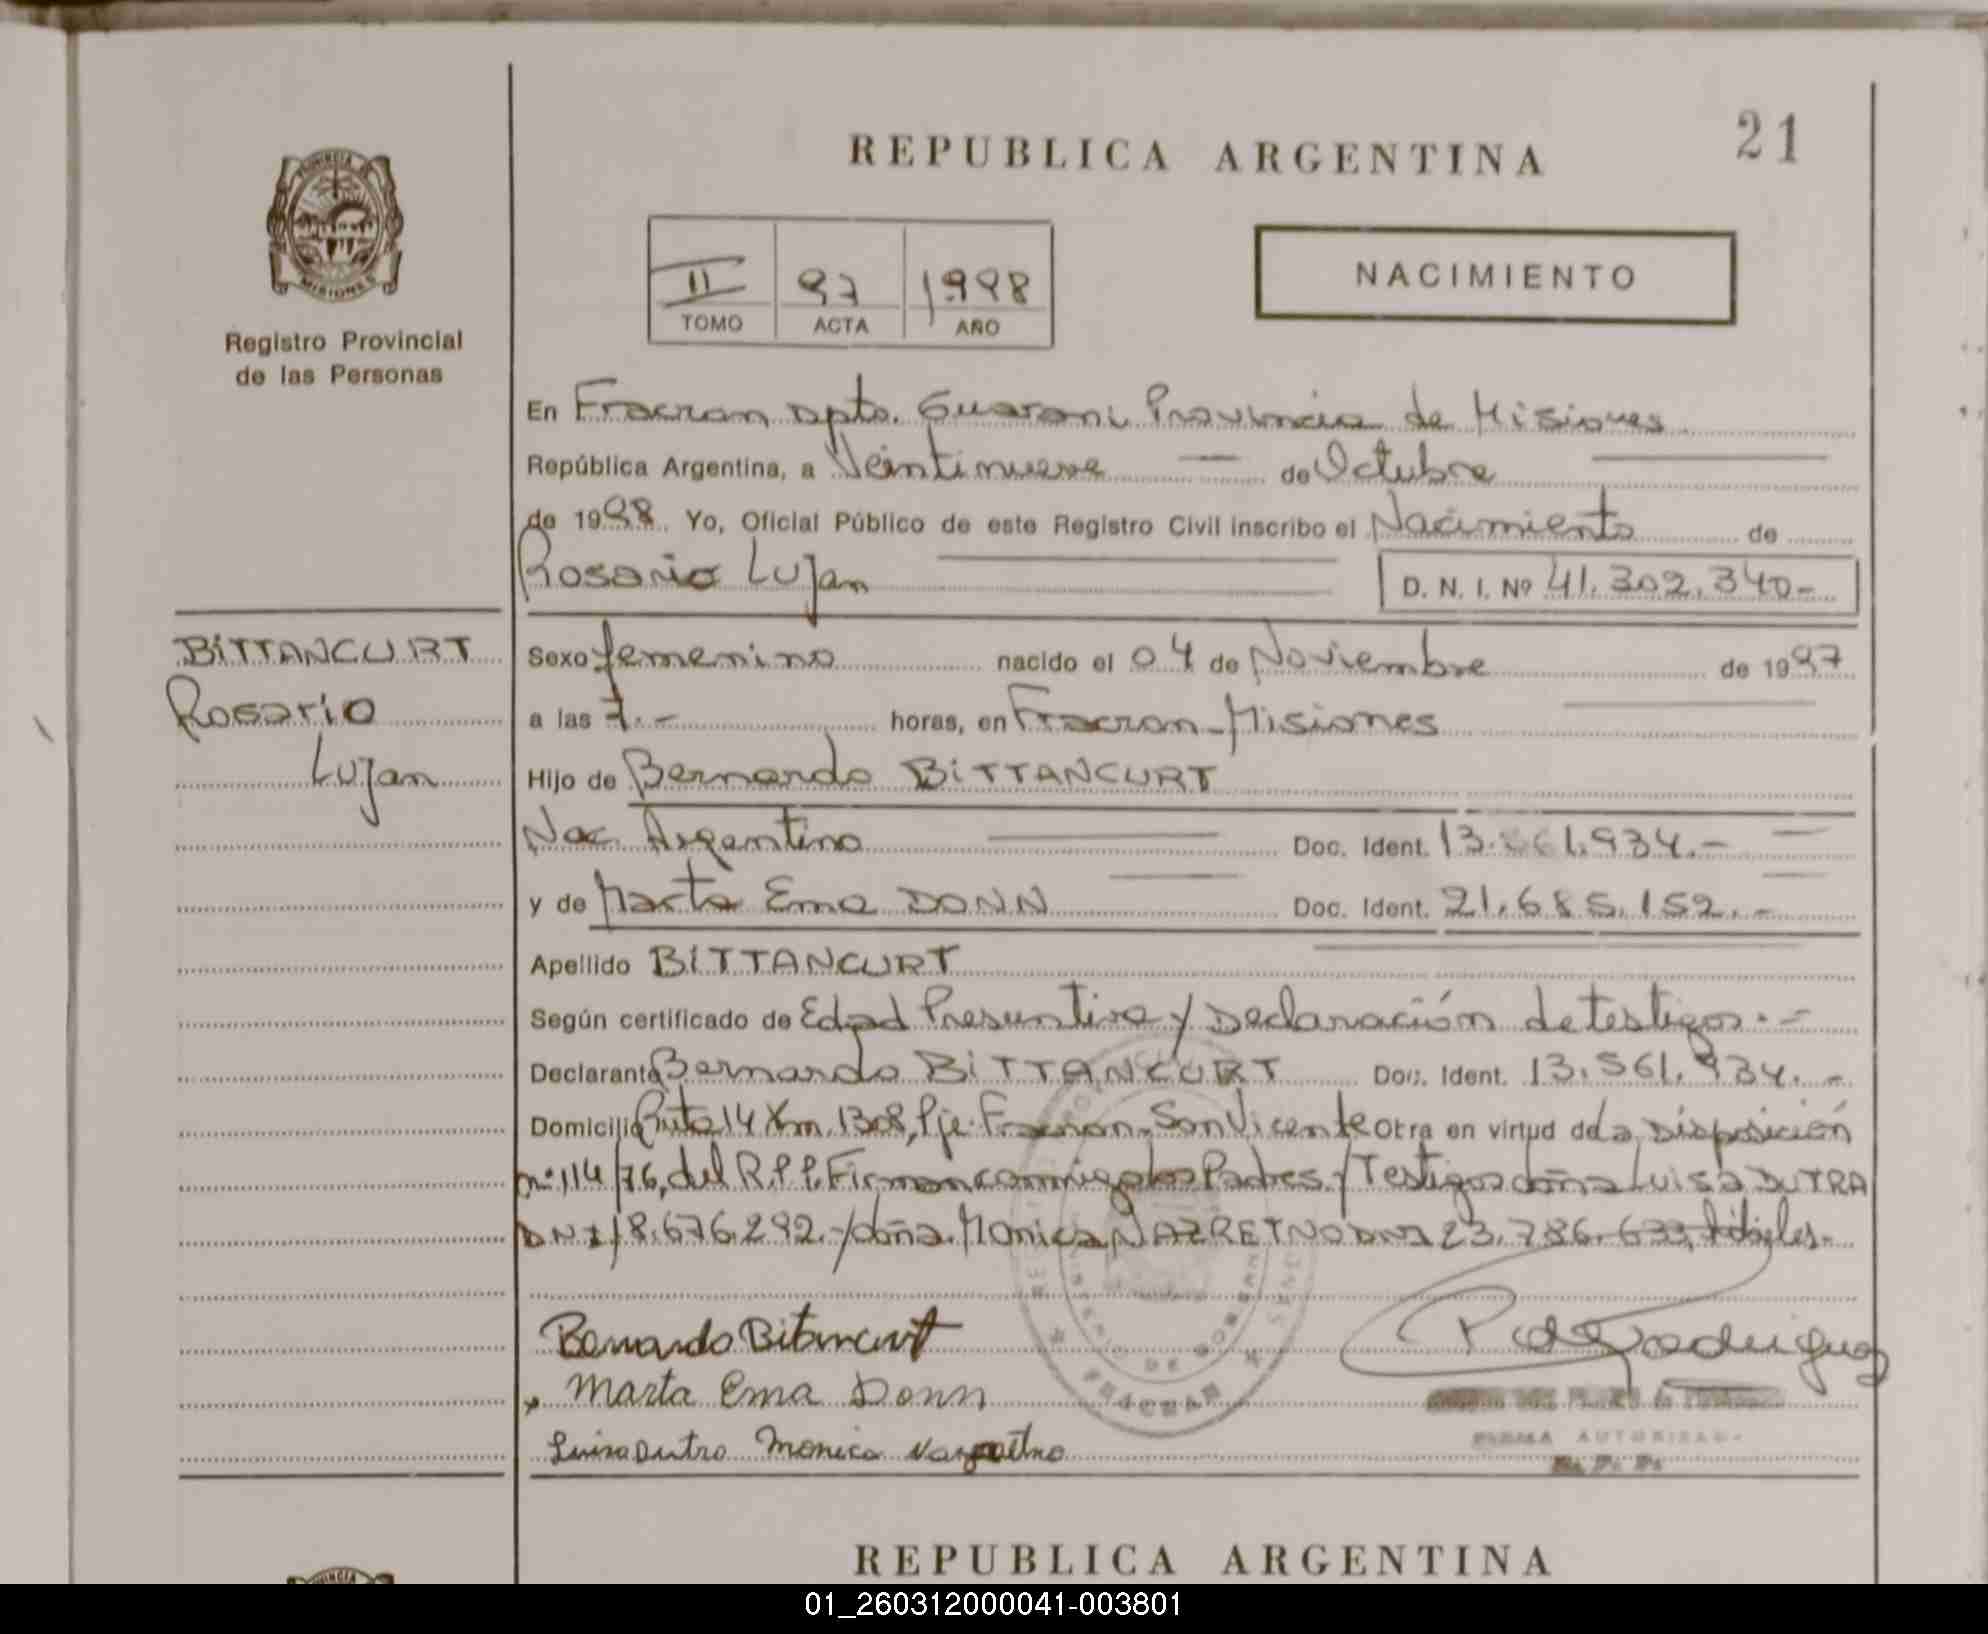 21
REPUBLICA ARGENTINA
PROVINCIA DE
MISIONES
Registro Provincial
de las Personas
II 97 1998
TOMO ACTA AÑO
NACIMIENTO
En Fracran Dpto. Guarani Provincia de Misiones
República Argentina, a Veintinueve de Octubre
de 1998 Yo, Oficial Público de este Registro Civil inscribo el Nacimiento de
Rosario Lujan
D. N. I. Nº 41.302.340-
BiTTANCURT
Rosario
Lujan
Sexo femenino nacido el 04 de Noviembre de 1997
a las 7.- horas, en Fracran-Misiones
Hijo de Bernardo BiTTANCURT
Nac. Argentino Doc. Ident. 13.561.934.-
y de Marta Ema DONN Doc. Ident. 21.685.152.-
Apellido BiTTANCURT
Según certificado de Edad Presuntiva y Declaración de testigos.-
Declarante Bernardo BiTTANCURT Doc. Ident. 13.561.934.-
Domicilio Ruta 14 Km. 1308, Pje. Fracran-San Vicente Otra en virtud de la Disposición
nº 114/76, del R.P.P. Firman conmigo los Padres y Testigos doña Luisa DUTRA
DNI 18.676.292.-y doña Monica NAZRETNO DNI 23.786.633,
Bernardo Bitancurt
Marta Ema Donn
Luisa Dutra Monica
Rodriguez
FRACRAN
FIRMA AUTORIZADA
REPUBLICA ARGENTINA
01_260312000041-003801